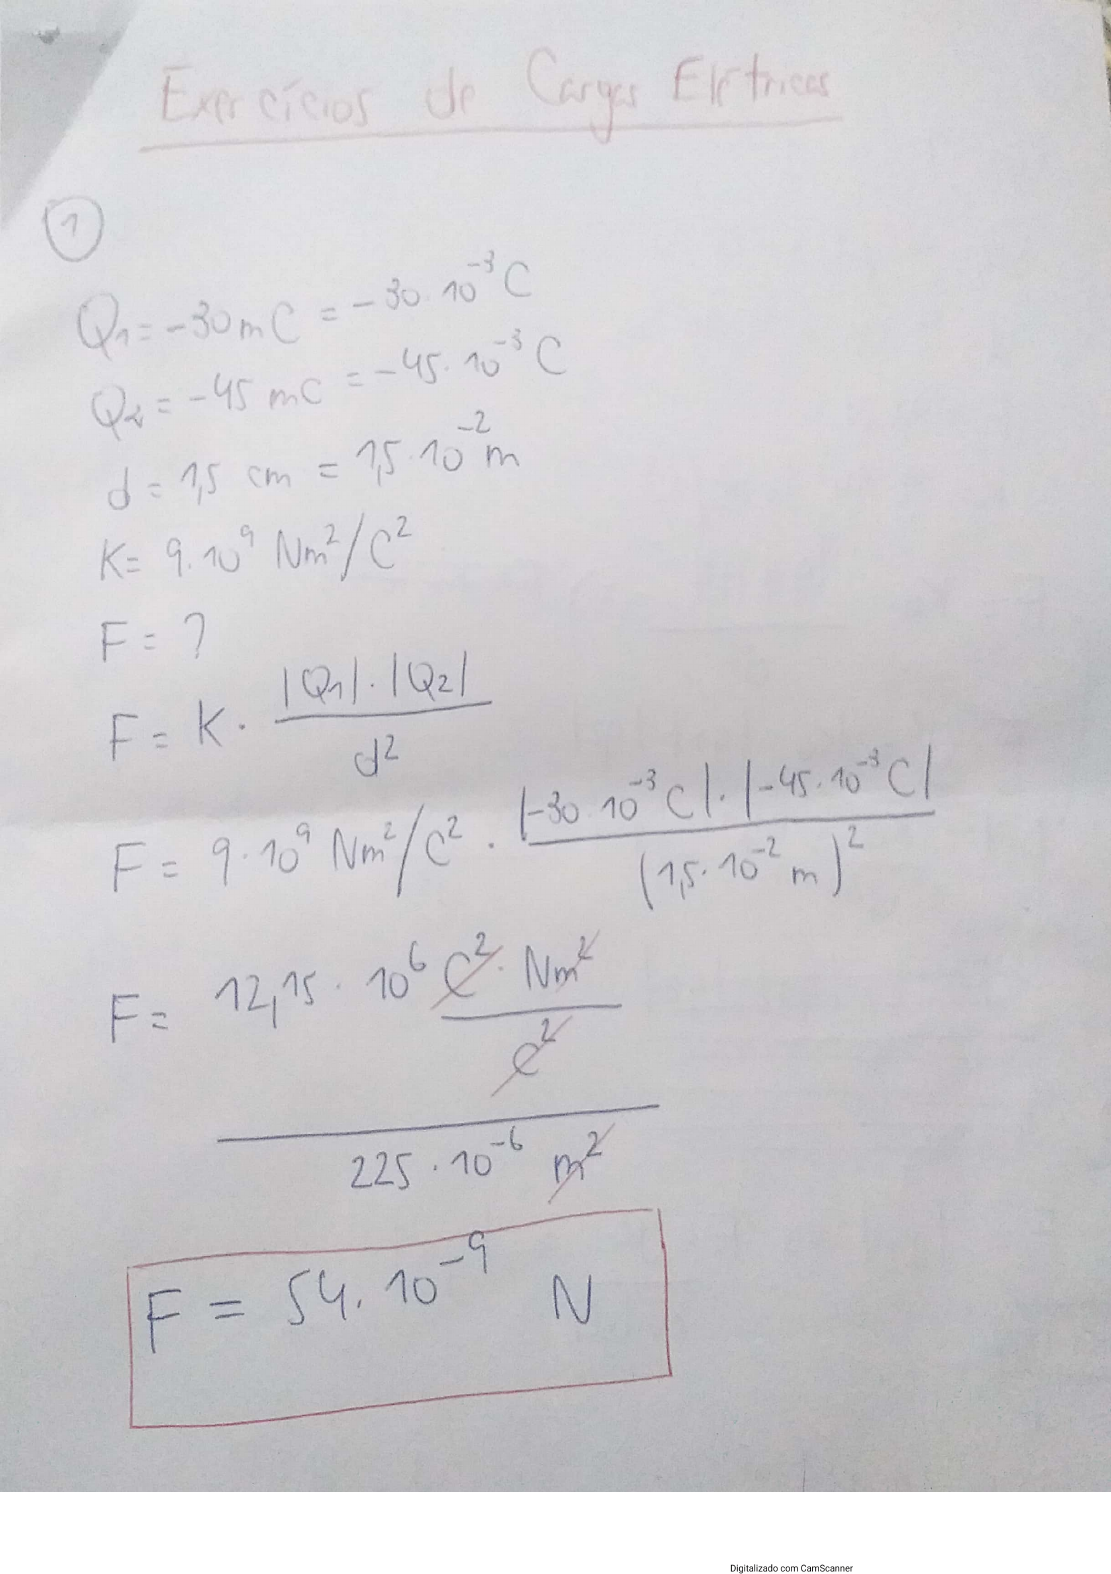 Exercícios de Cargas Elétricas
1
Q₁ = -30 mC = -30 · 10⁻³ C
Q₂ = -45 mC = -45 · 10⁻³ C
d = 1,5 cm = 1,5 · 10⁻² m
K = 9 · 10⁹ Nm²/C²
F = ?
F = K · |Q₁| · |Q₂| / d²
F = 9 · 10⁹ Nm²/C² · |-30 · 10⁻³ C| · |-45 · 10⁻³ C| / (1,5 · 10⁻² m)²
F = 12,15 · 10⁶ C² · Nm² / C²
225 · 10⁻⁶ m²
F = 54 · 10⁻⁹ N
Digitalizado com CamScanner